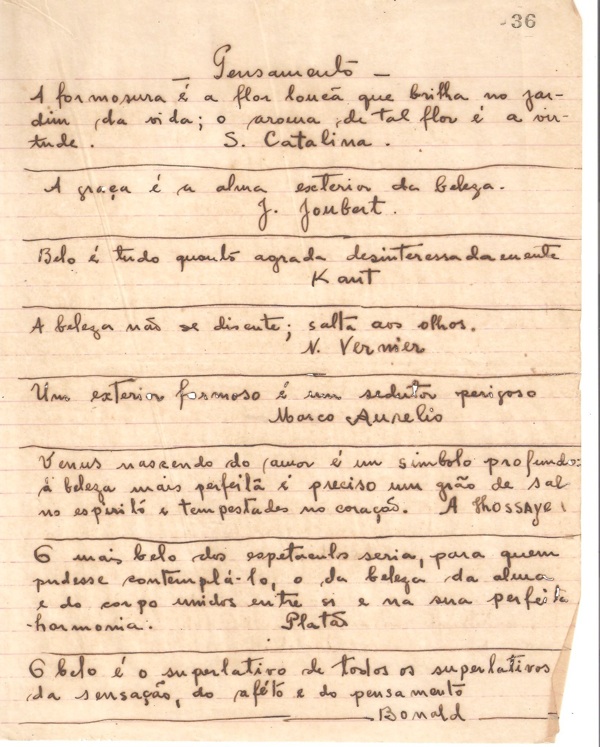 36
- Pensamento -
A formosura é a flor louçã que brilha no jar-
dim da vida; o aroma de tal flor é a vir-
tude. S. Catalina.
A graça é a alma exterior da beleza.
J. Joubert.
Belo é tudo quanto agrada desinteressadamente
Kant
A beleza não se discute; salta aos olhos.
N. Vernier
Um exterior formoso é um sedutor perigoso
Marco Aurelio
Venus nascendo do amor é um simbolo profundo:
á beleza mais perfeitã é preciso um grão de sal
no espiritó e tempestades no coração. A Houssaye
O mais belo dos espetaculos seria, para quem
pudesse contemplá-lo, o da beleza da alma
e do corpo unidos entre si e na sua perfeita
harmonia. Platão
O belo é o superlativo de todos os superlativos
da sensação, do aféto e do pensamento
Bonald